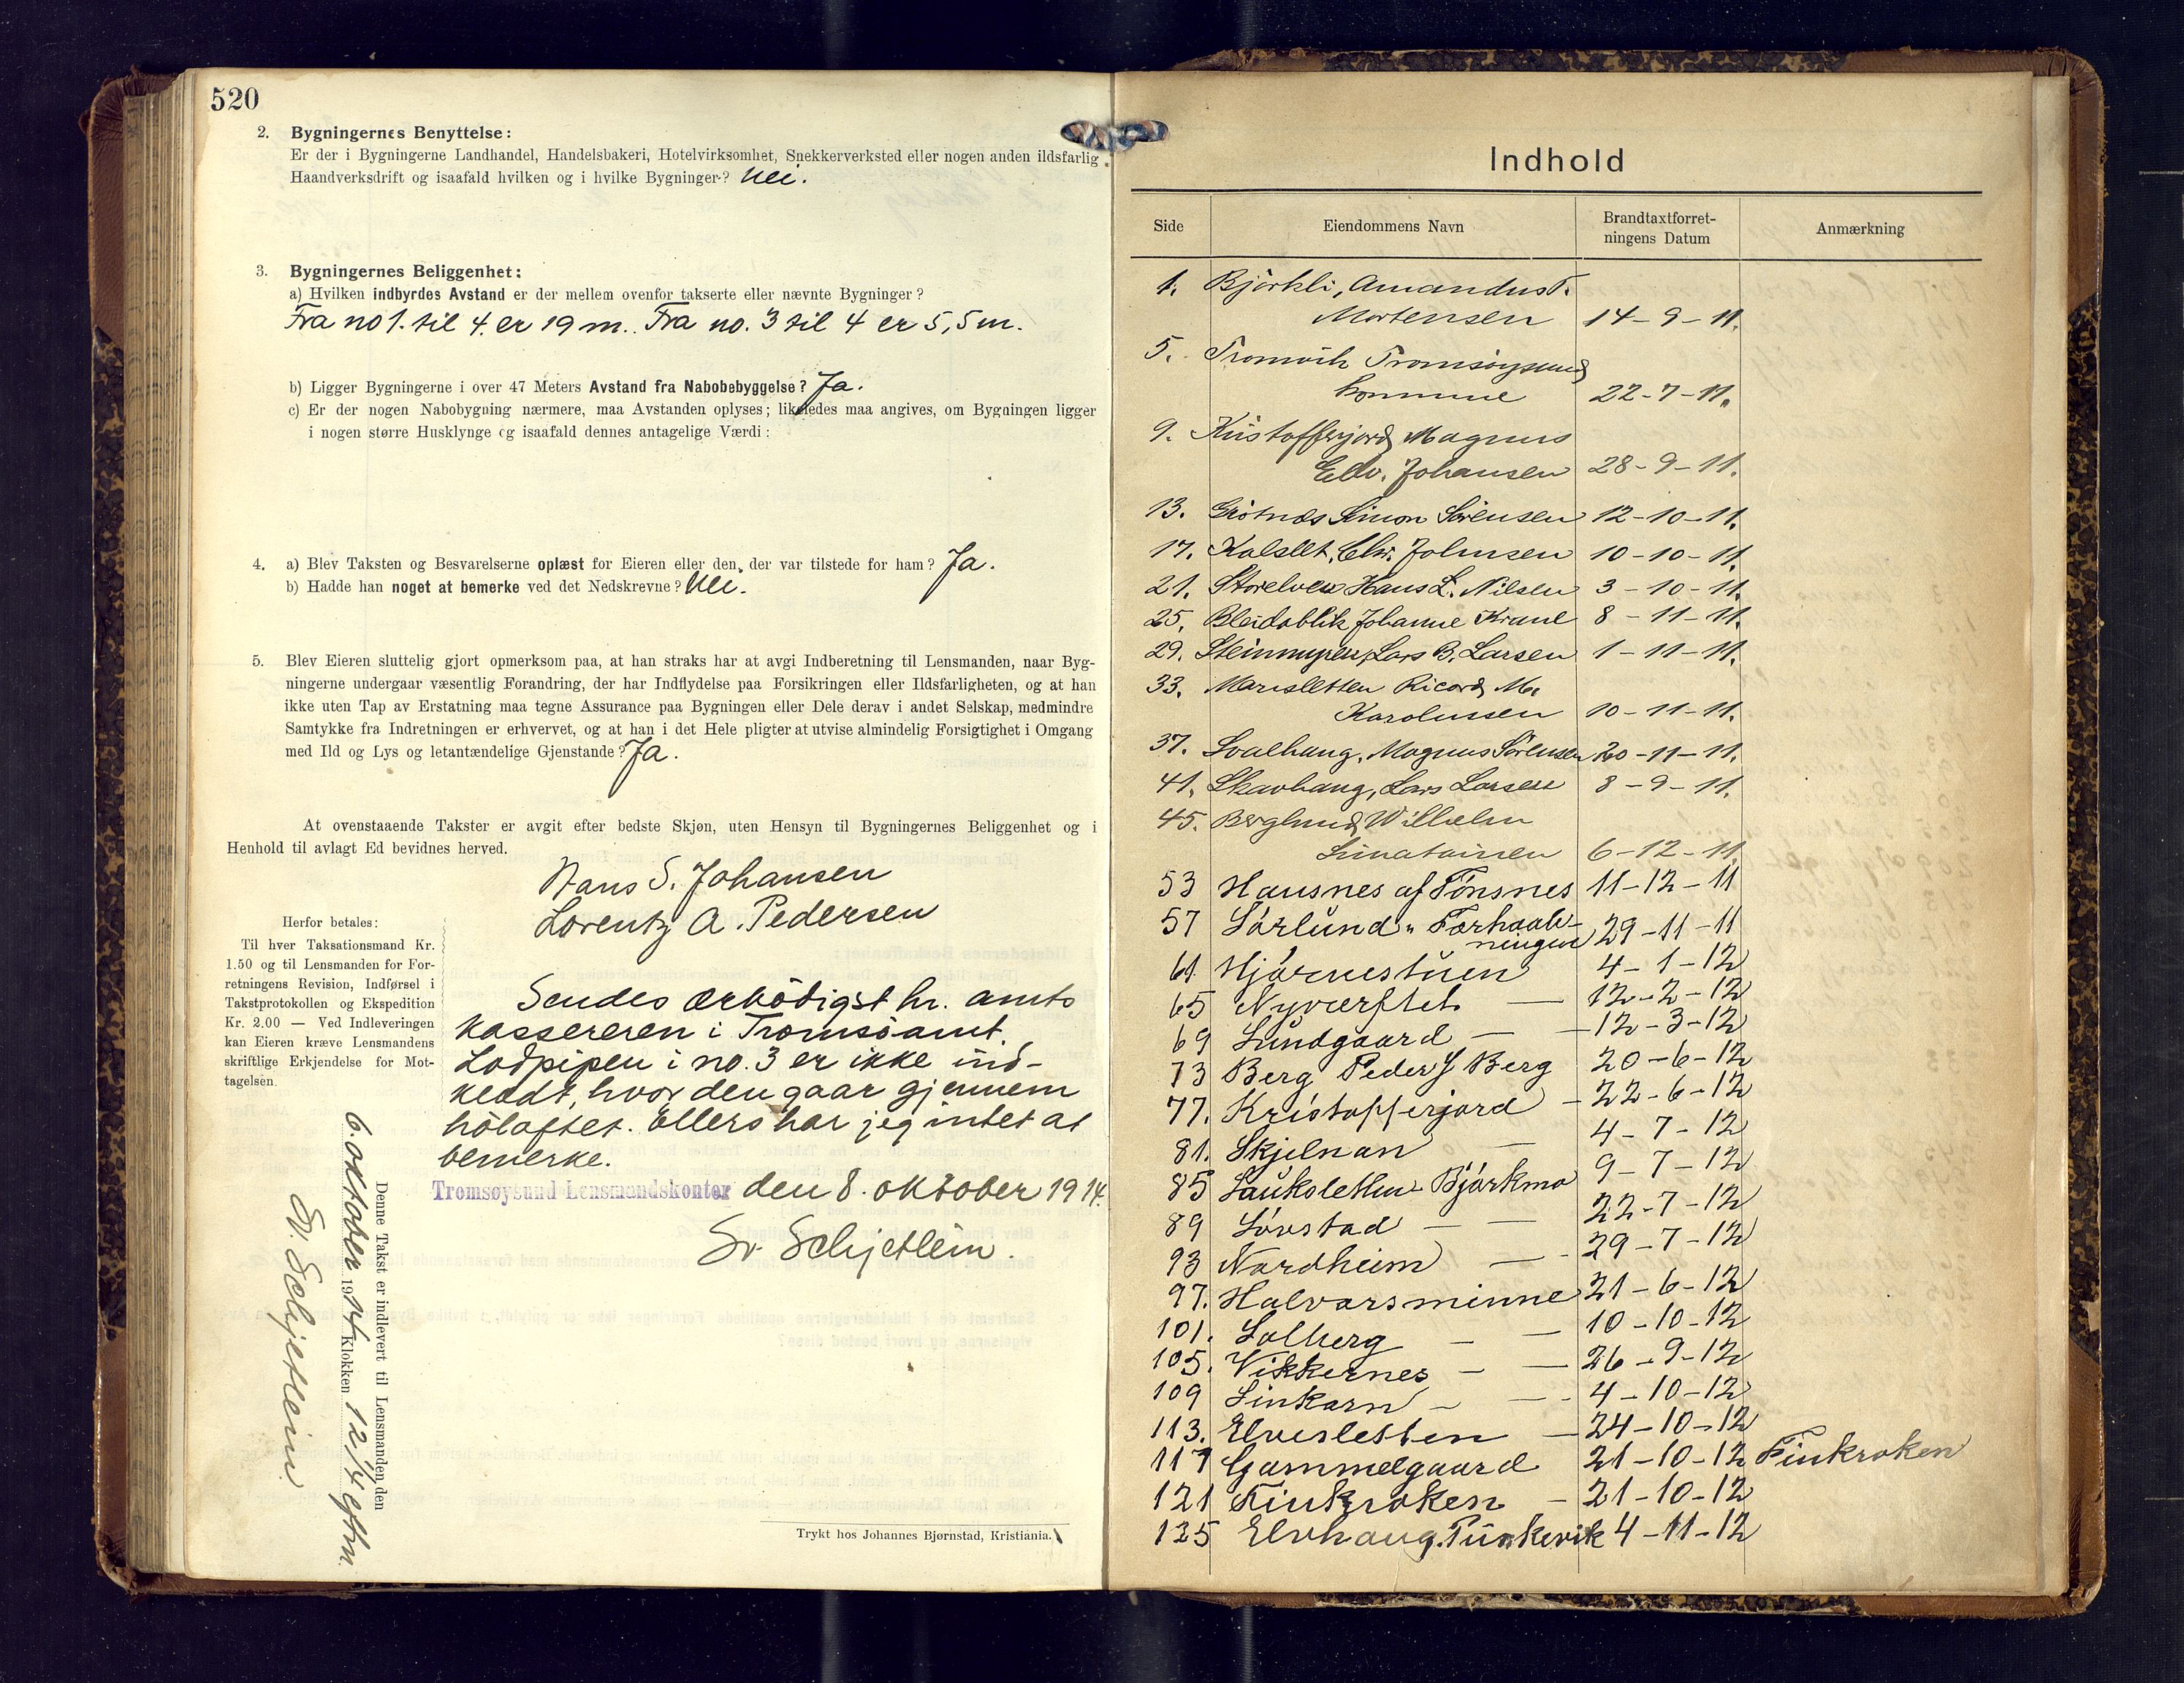 520
2. Bygningernes Benyttelse:
Er der i Bygningerne Landhandel, Handelsbakeri, Hotelvirksomhet, Snekkerverksted eller nogen anden ildsfarlig
Haandverksdrift og isaafald hvilken og i hvilke Bygninger? Nei.
3. Bygningernes Beliggenhet:
a) Hvilken indbyrdes Avstand er der mellem ovenfor takserte eller nævnte Bygninger?
Fra no 1. til 4. er 19 m. Fra no. 3 til 4 er 5,5 m.
b) Ligger Bygningerne i over 47 Meters Avstand fra Nabobebyggelse? Ja.
c) Er der nogen Nabobygning nærmere, maa Avstanden oplyses; likeledes maa angives, om Bygningen ligger
i nogen større Husklynge og isaafald dennes antagelige Værdi:
4. a) Blev Taksten og Besvarelserne oplæst for Eieren eller den, der var tilstede for ham? Ja.
b) Hadde han noget at bemerke ved det Nedskrevne? Nei.
5. Blev Eieren sluttelig gjort opmerksom paa, at han straks har at avgi Indberetning til Lensmanden, naar Byg-
ningerne undergaar væsentlig Forandring, der har Indflydelse paa Forsikringen eller Ildsfarligheten, og at han
ikke uten Tap av Erstatning maa tegne Assurance paa Bygningen eller Dele derav i andet Selskap, medmindre
Samtykke fra Indretningen er erhvervet, og at han i det Hele pligter at utvise almindelig Forsigtighet i Omgang
med Ild og Lys og letantændelige Gjenstande? Ja.
At ovenstaaende Takster er avgit efter bedste Skjøn, uten Hensyn til Bygningernes Beliggenhet og i
Henhold til avlagt Ed bevidnes herved.
Hans S. Johansen
Lorentz A. Pedersen
Herfor betales:
Til hver Taksationsmand Kr.
1.50 og til Lensmanden for For-
retningens Revision, Indførsel i
Takstprotokollen og Ekspedition
Kr. 2.00 — Ved Indleveringen
kan Eieren kræve Lensmandens
skriftlige Erkjendelse for Mot-
tagelsen.
Sendes ærbödigst hr. amts
kassereren i Tromsöamt.
Lodpipen i no. 3 er ikke ind-
klædt, hvor den gaar gjennem
höloftet. Ellers har jeg intet at
bemerke.
Tromsøysund Lensmandskontor den 8. oktober 1914.
Sv. Schjetlein.
Denne Takst er indlevert til Lensmanden den
6. oktober 1914 Klokken 12/4 eftm.
Sv. Schjetlein.
Trykt hos Johannes Bjørnstad, Kristiania.
Indhold
Side Eiendommens Navn Brandtaxtforret-ningens Datum Anmærkning
1. Björkli, Amandus T.
Mortensen 14-9-11.
5. Tromvik Tromsöysund
kommune 22-7-11.
9. Kristofferjord, Magnus
Edv. Johansen 28-9-11.
13. Grötnæs Simon Sörensen 12-10-11.
17. Kalslet, Chr. Johnsen 10-10-11.
21. Storelven Hans L. Nilsen 3-10-11.
25. Bleidablik Johanne Krane 8-11-11.
29. Steinmyren, Lars B. Larsen 1-11-11.
33. Marisletten Ricard M.
Karolussen 10-11-11.
37. Svalhaug, Magnus Sörensen 20-11-11.
41. Skavhaug, Lars Larsen 8-9-11.
45. Berglund, Wilhelm
6-12-11.
53 Hausnes af Tönsnes 11-12-11
57 Sörlund " Forhaab-
ningen 29-11-11
61 Hjörnestuen 4-1-12
65 Nyværftet — 12-2-12
69 Lundgaard — 12-3-12
73 Berg Peder J Berg 20-6-12
77. Kristofferjord — 22-6-12
81. Skjelnan — 4-7-12
85 Lauksletten Björkmo 9-7-12
89 Lövstad — — 22-7-12
93 Nordheim — 29-7-12
97. Halvarsminne 21-6-12
101. Solberg — — 10-10-12
105. Vikkernes — — 26-9-12
109 Sinkarn — — 4-10-12
113. Elvesletten — 24-10-12
117 Gammelgaard 21-10-12 Finkroken
121 Finkroken — 21-10-12
125 Elvhaug. 4-11-12